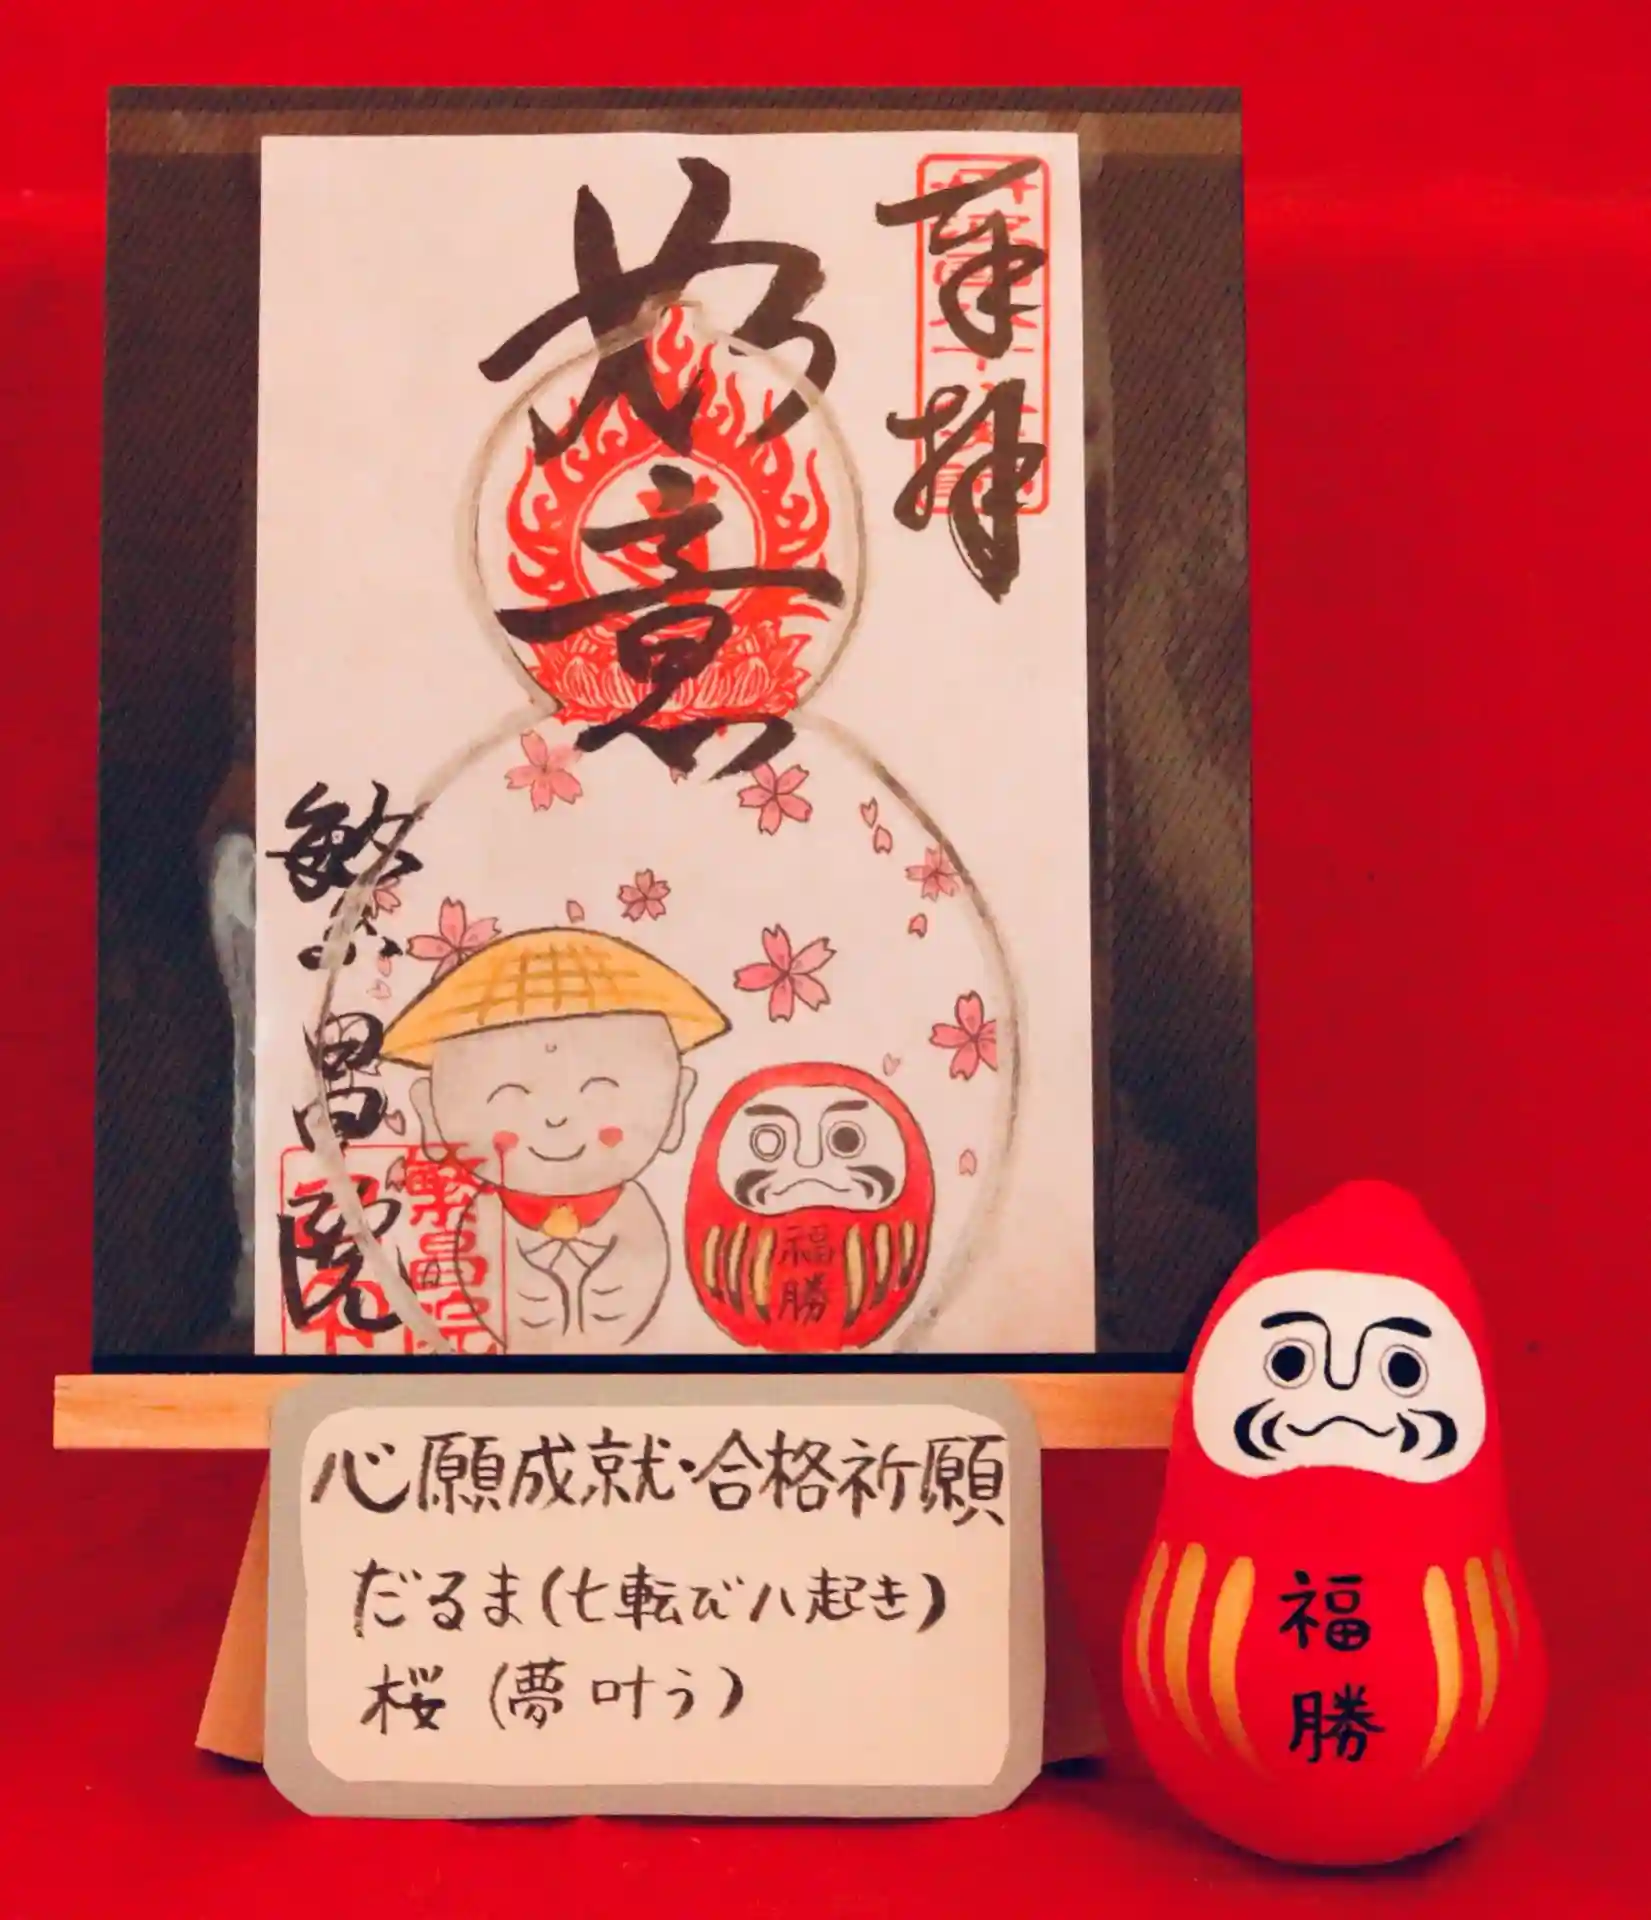 奉拝
如意
繁昌院
繁昌院
福
勝
心願成就・合格祈願
だるま(七転び八起き)
桜(夢叶う)
福
勝